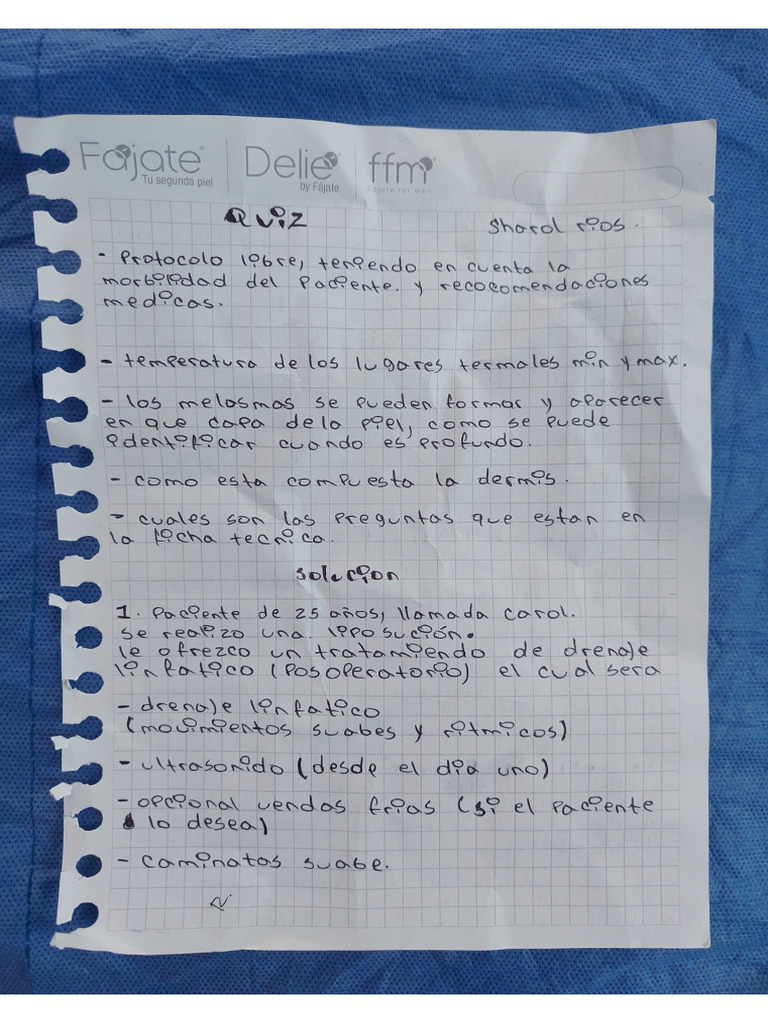 Fájate Delie ffm
Tu segunda piel by Fájate Fájate for men
QUIZ Sharol rios.
- Protocolo libre, teniendo en cuenta la
morbilidad del paciente. y recocomendaciones
medicas.
- temperatura de los lugares termales min y max.
- los melasmas se pueden formar y aparecer
en que capa de la piel, como se puede
identificar cuando es profundo.
- como esta compuesta la dermis.
- cuales son las preguntas que estan en
la ficha tecnica.
solucion
1. paciente de 25 años, llamada carol.
se realizo una. lipo sución.
le ofrezco un tratamiendo de drenaje
linfatico (posoperatorio) el cual sera
- drenaje linfatico
(movimientos suabes y ritmicos)
- ultrasonido (desde el dia uno)
- opcional vendas frias (si el paciente
lo desea)
- caminatas suabe.